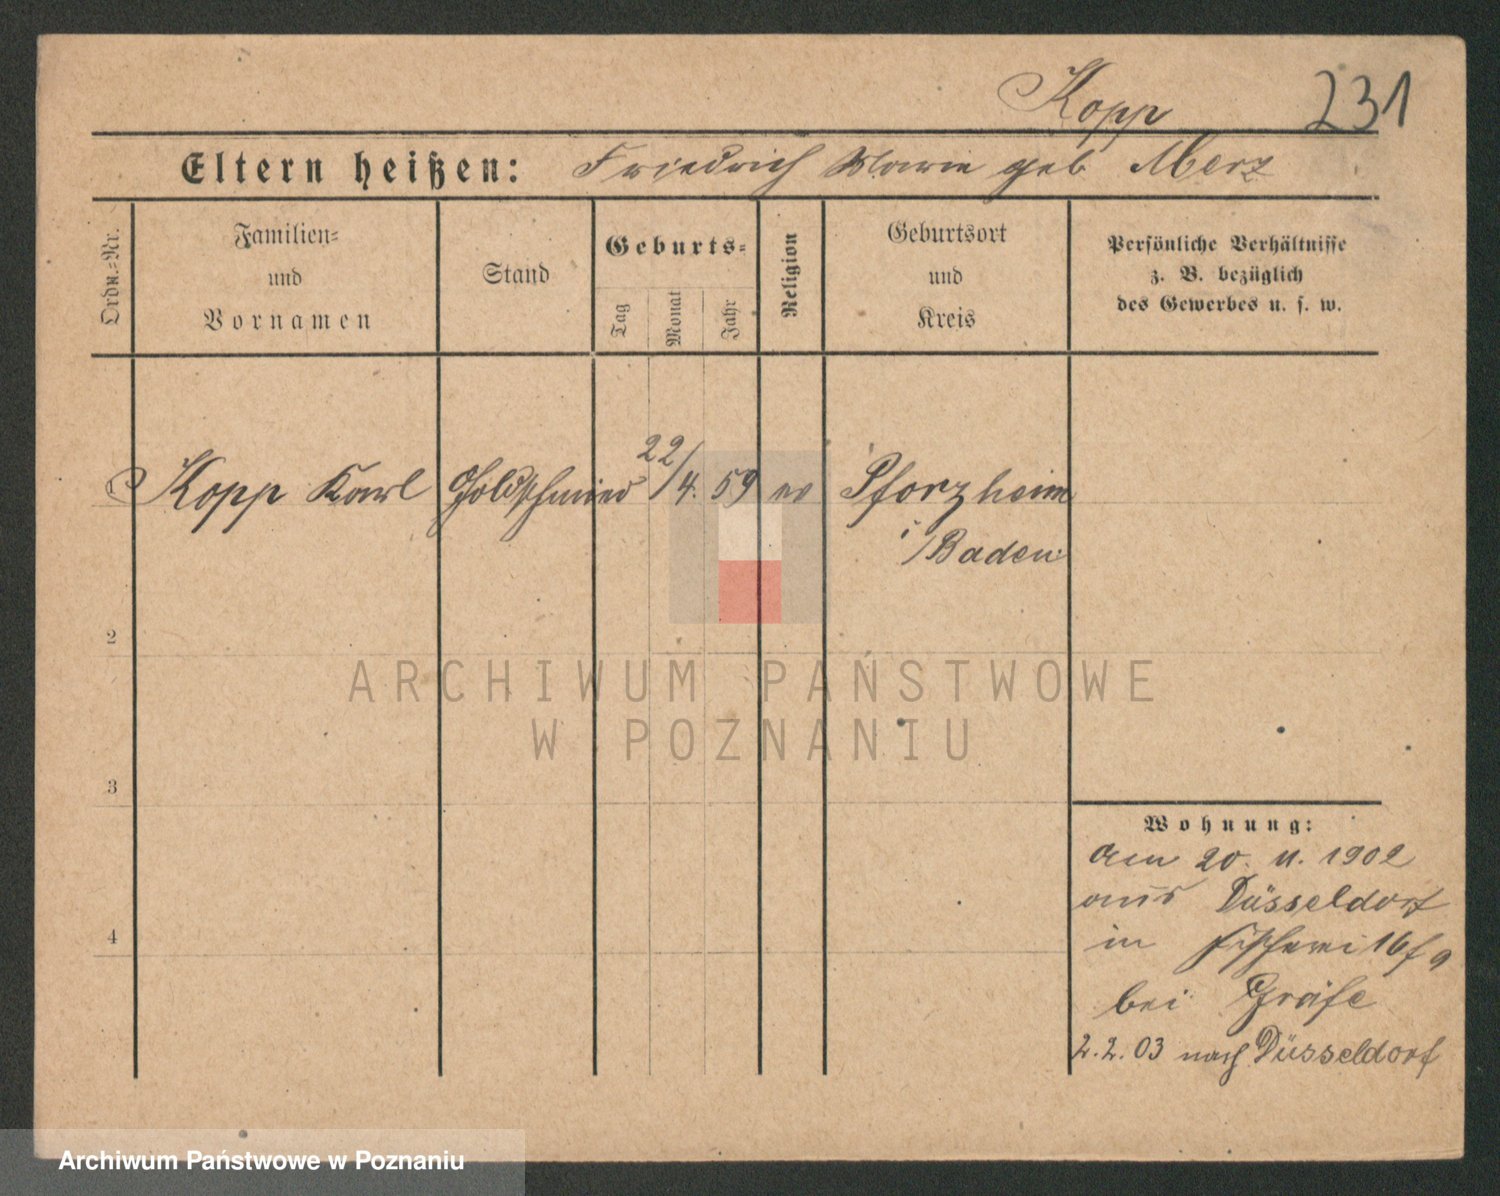 Kopp 231
Eltern heißen: Friedrich Marie geb Merz
Ordn.=Nr.
Familien=
und
Vornamen
Stand
Geburts=
Tag
Monat
Jahr
Religion
Geburtsort
und
Kreis
Persönliche Verhältnisse
z. B. bezüglich
des Gewerbes u. s. w.
Kopp Karl Goldschmied 22/4. 59 ev Pforzheim
i/Baden
2
3
4
Wohnung:
am 20. 11. 1902
aus Düsseldorf
in Fischerei 16 f 9
bei Gräfe
2.2.03 nach Düsseldorf
ARCHIWUM PAŃSTWOWE
W POZNANIU
Archiwum Państwowe w Poznaniu